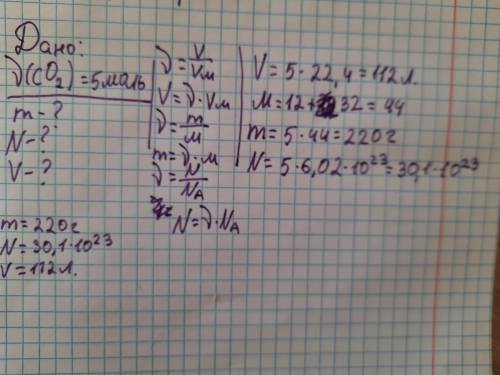 Дано:
ν(CO₂) = 5 моль
m - ?
N - ?
V - ?
ν = V/Vм
V = ν · Vм
ν = m/M
m = ν · M
ν = N/NA
N = ν · NA
V = 5 · 22,4 = 112 л.
M = 12 + 32 = 44
m = 5 · 44 = 220 г
N = 5 · 6,02 · 10²³ = 30,1 · 10²³
m = 220 г
N = 30,1 · 10²³
V = 112 л.